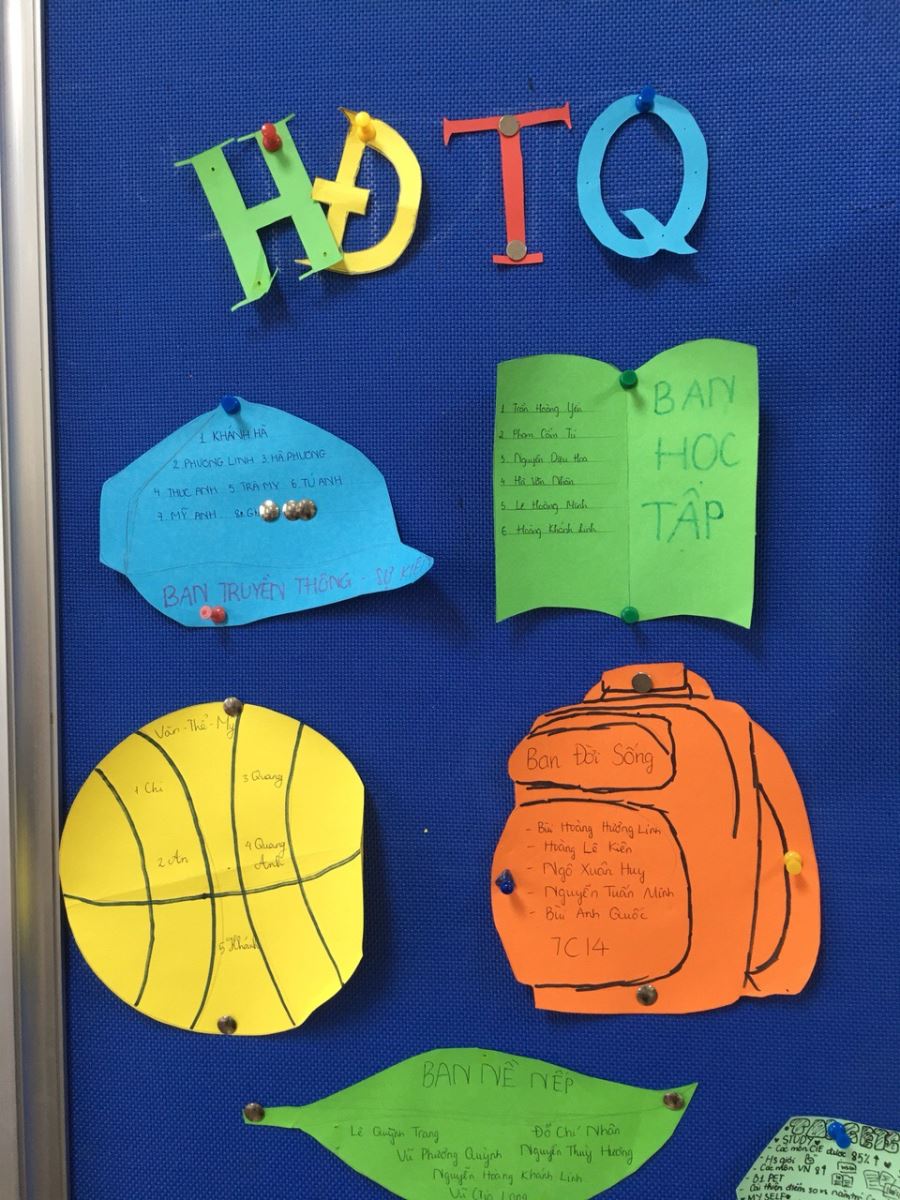 HĐTQ
1 KHÁNH HÀ
2. PHƯƠNG LINH 3. HÀ PHƯƠNG
4. THỤC ANH 5. TRÀ MY 6. TÚ ANH
7. MỸ ANH
BAN TRUYỀN THÔNG - SỰ KIỆN
1 Trần Hoàng Yến
2 Phạm Cẩm Tú
3. Nguyễn Diệu Hoa
4 Hà Văn Nhân
5 Lê Hoàng Minh
6 Hoàng Khánh Linh
BAN
HỌC
TẬP
Văn-Thể-Mỹ
1 Chi
3 Quang
2 An
4 Quang
Anh
5 Khánh
Ban Đời Sống
- Bùi Hoàng Hương Linh
- Hoàng Lê Kiên
- Ngô Xuân Huy
- Nguyễn Tuấn Minh
- Bùi Anh Quốc
7C14
BAN NỀ NẾP
Lê Quỳnh Trang Đỗ Chí Nhân
Vũ Phương Quỳnh Nguyễn Thuỳ Hương
Nguyễn Hoàng Khánh Linh
Long
STUDY
- Các môn CIE được 85% ↑
- Hs giỏi
- Các môn VN 8↑
- B1 PET
MY SELF